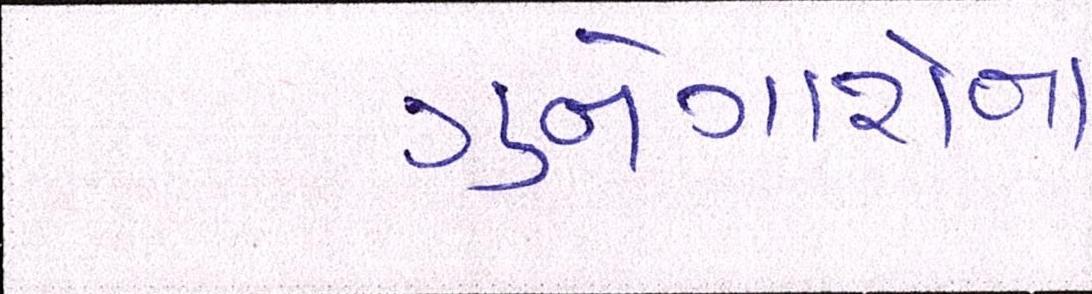 ગુનેગારોના